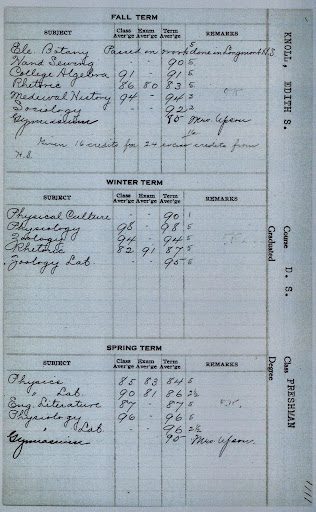 FALL TERM
SUBJECT Class Aver'ge Exam Aver'ge Term Aver'ge REMARKS
Ele. Botany Passed on work done in Longmont H.S.
Hand Sewing - - 90 5
College Algebra 91 - 91 5
Rhetoric 86 80 83 5
Medieval History 94 - 94 2
Sociology - - 92 2
Gymnasium 85 Mrs Upson
Given 16 credits for 24 exam credits from
H.S.
WINTER TERM
SUBJECT Class Aver'ge Exam Aver'ge Term Aver'ge REMARKS
Physical Culture - - 90 1
Physiology 98 - 98 5
Zoology 94 - 94 5
Rhetoric 82 91 87 5
Zoology Lab. - - 95 5
SPRING TERM
SUBJECT Class Aver'ge Exam Aver'ge Term Aver'ge REMARKS
Physics 85 83 84 5
" Lab. 90 81 86 2½
Eng. Literature 87 - 87 5
Physiology 96 - 96 5
" Lab. 96 2½
Gymnasium 90 Mrs Upson
KNOLL, EDITH S.
Course D. S.
Graduated
Class FRESHMAN
Degree